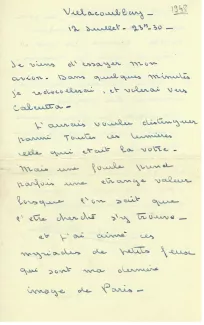 1938
Villacoublay _
12 Juillet _ 23h.30 _
Je viens d'essayer mon
avion. Dans quelques minutes
je redécollerai, et volerai vers
Calcutta _
J'aurais voulu distinguer
parmi toutes ces lumières
celle qui était la vôtre _
Mais une foule prend
parfois une étrange valeur
lorsque l'on sait que
l'être cherché s'y trouve _
et j'ai aimé ces
myriades de petits feux
qui sont ma dernière
image de Paris _